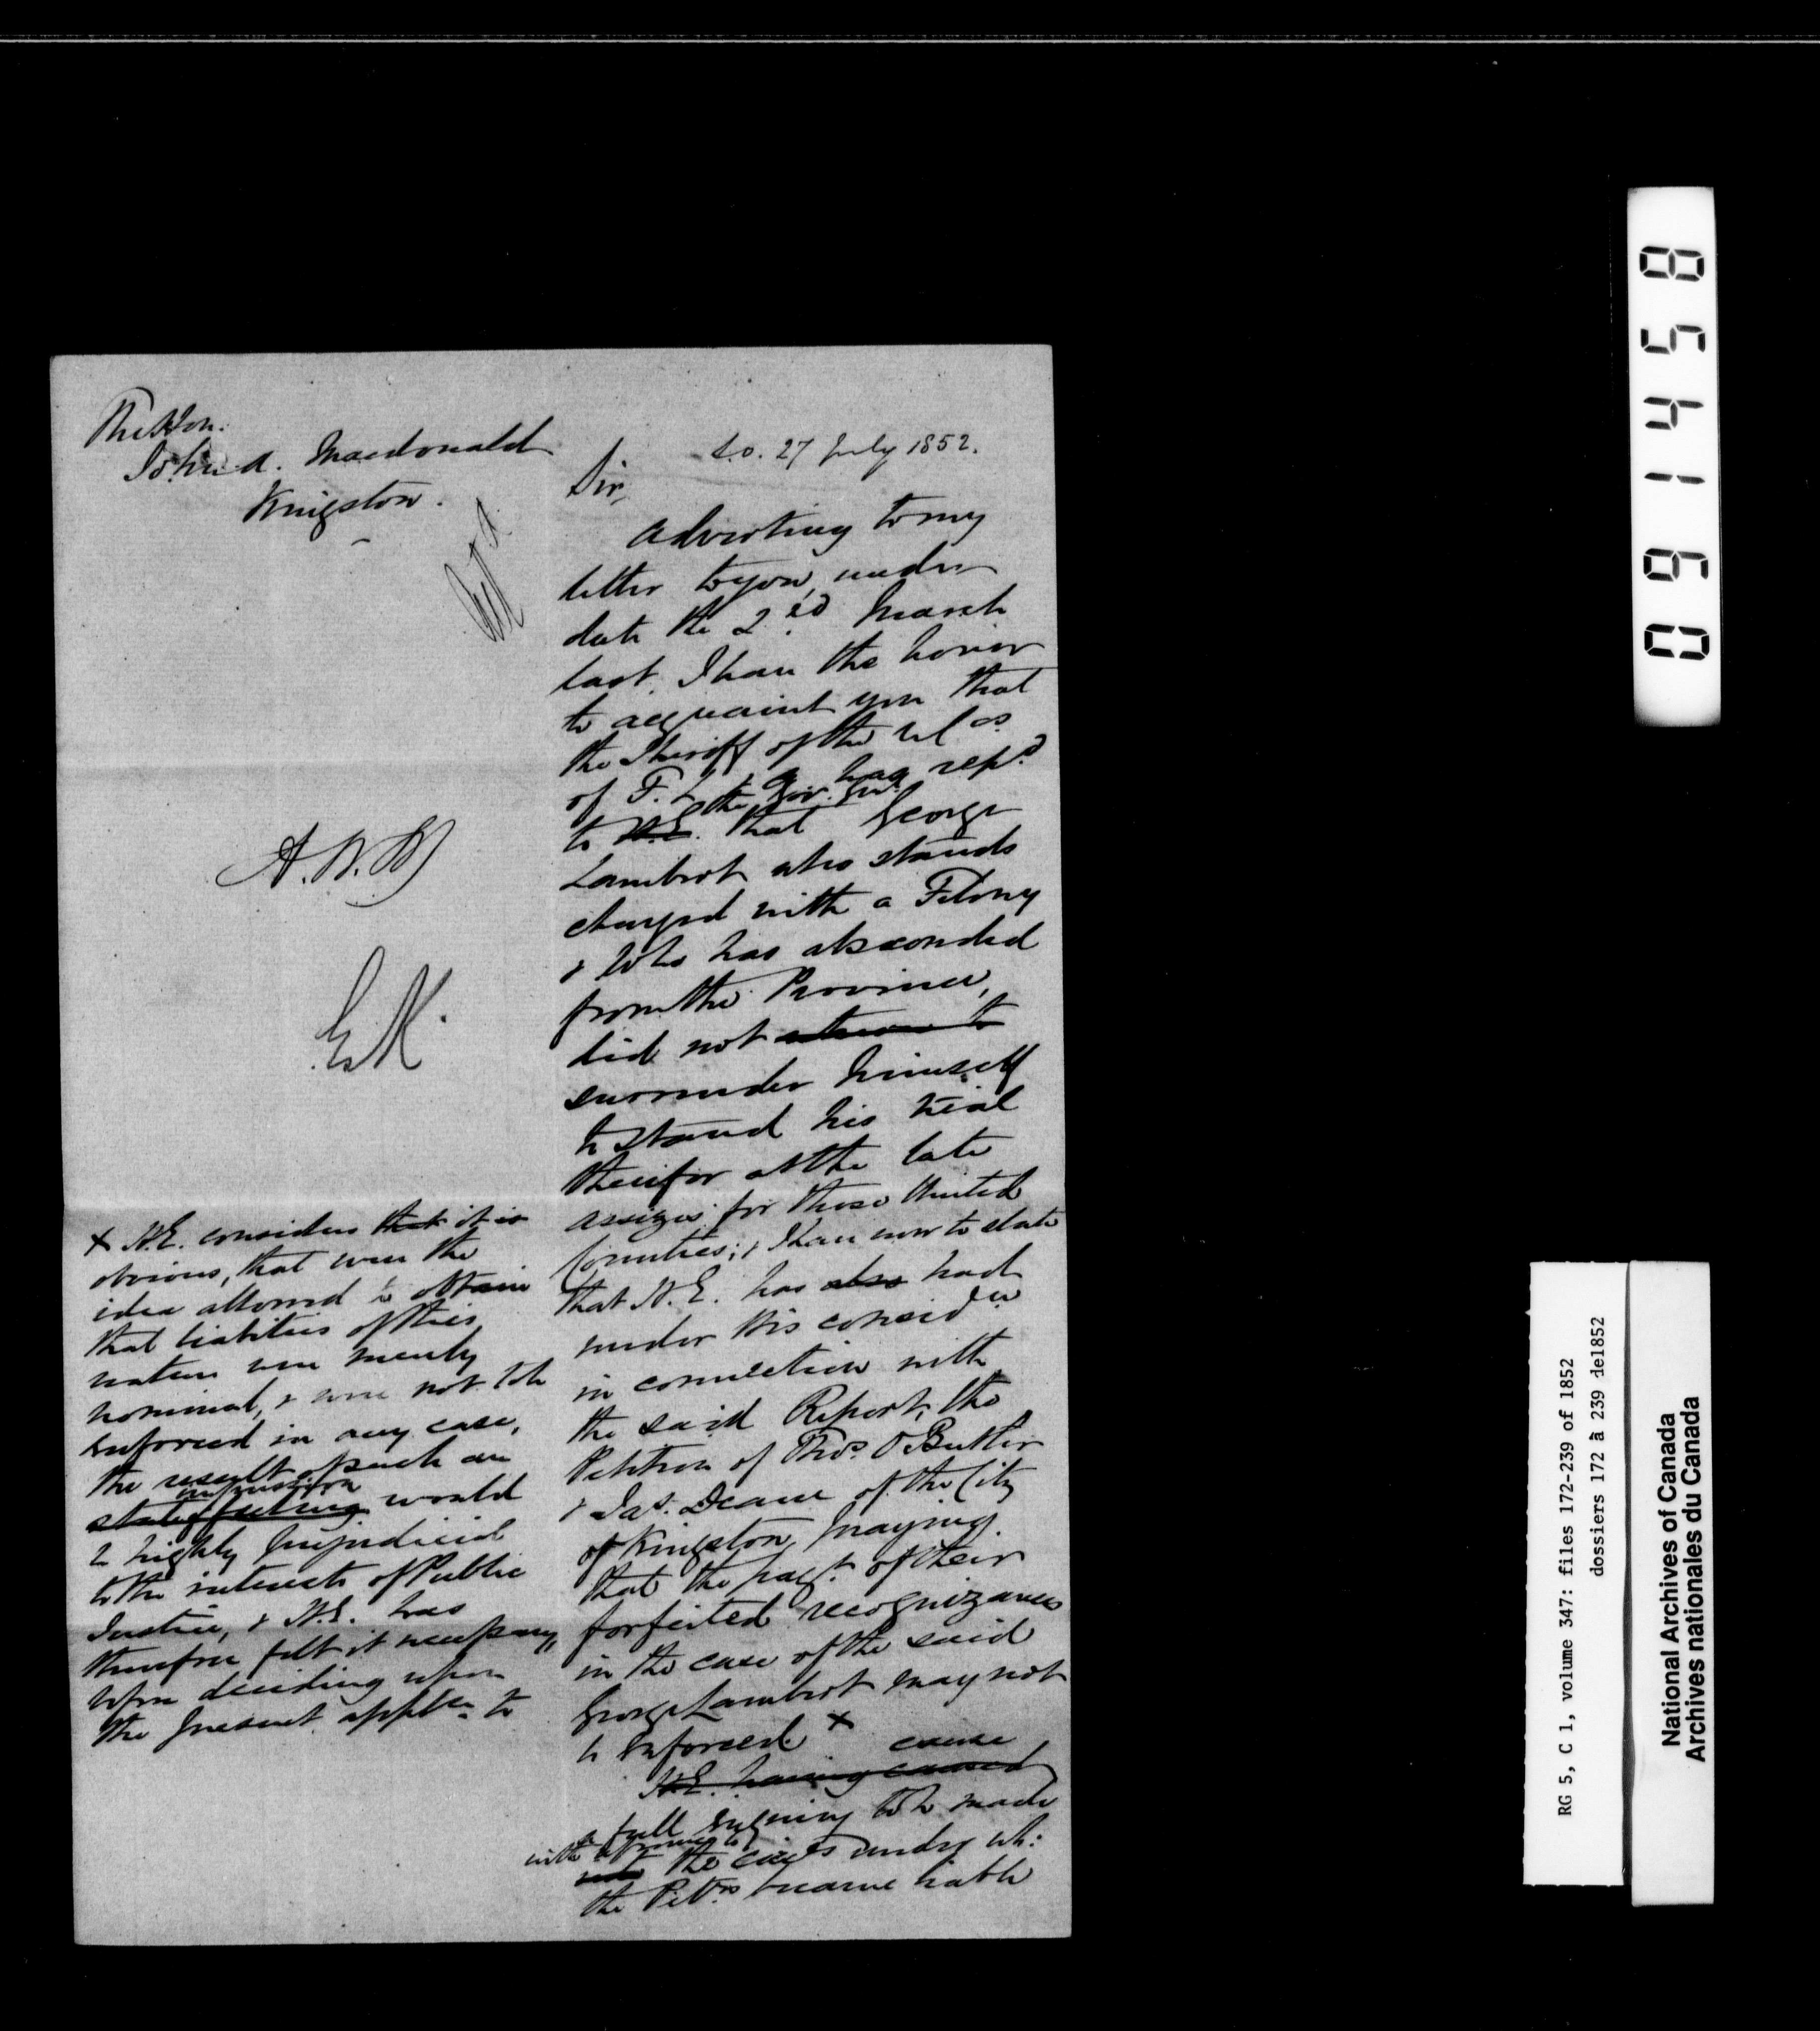 The Hon.
John A. Macdonald
Kingston.
S.O. 27 July 1852.
Sir,
Adverting to my
letter to you, under
date the 2ed March
last, I have the honor
to acquaint you that
the Sheriff of the Ud Cos
of F. L. & A. has repd
to H.E. the Gov. Genl. that George
Lambert who stands
charged with a Felony
& who has absconded
from the Province,
did not
surrender himself
to stand his trial
therefor at the late
assizes for those United
Counties; & I have now to state
that H.E. has also had
under his considn
in connection with
the said Report, the
Petition of Thos. O Butler
& Jas. Deane of the City
of Kingston, praying
that the payt. of their
forfeited recognizances
in the case of the said
George Lambert may not
be enforced x
H.E. having caused cause
a full enquiry to be made
with reference to the circs under wh:
the Petrs became liable
A.N.M
E.K.
x H.E. considers that it is
obvious, that were the
idea allowed to obtain
that liabilities of this
nature were merely
nominal, & were not to be
enforced in any case,
the result of such an
state of feeling impression would
be highly prejudicial
to the interests of Public
Justice, & H.E. has
therefore felt it necessary,
before deciding upon
the present appln. to
091458
RG 5, C 1, volume 347: files 172-239 of 1852
dossiers 172 à 239 de1852
National Archives of Canada
Archives nationales du Canada